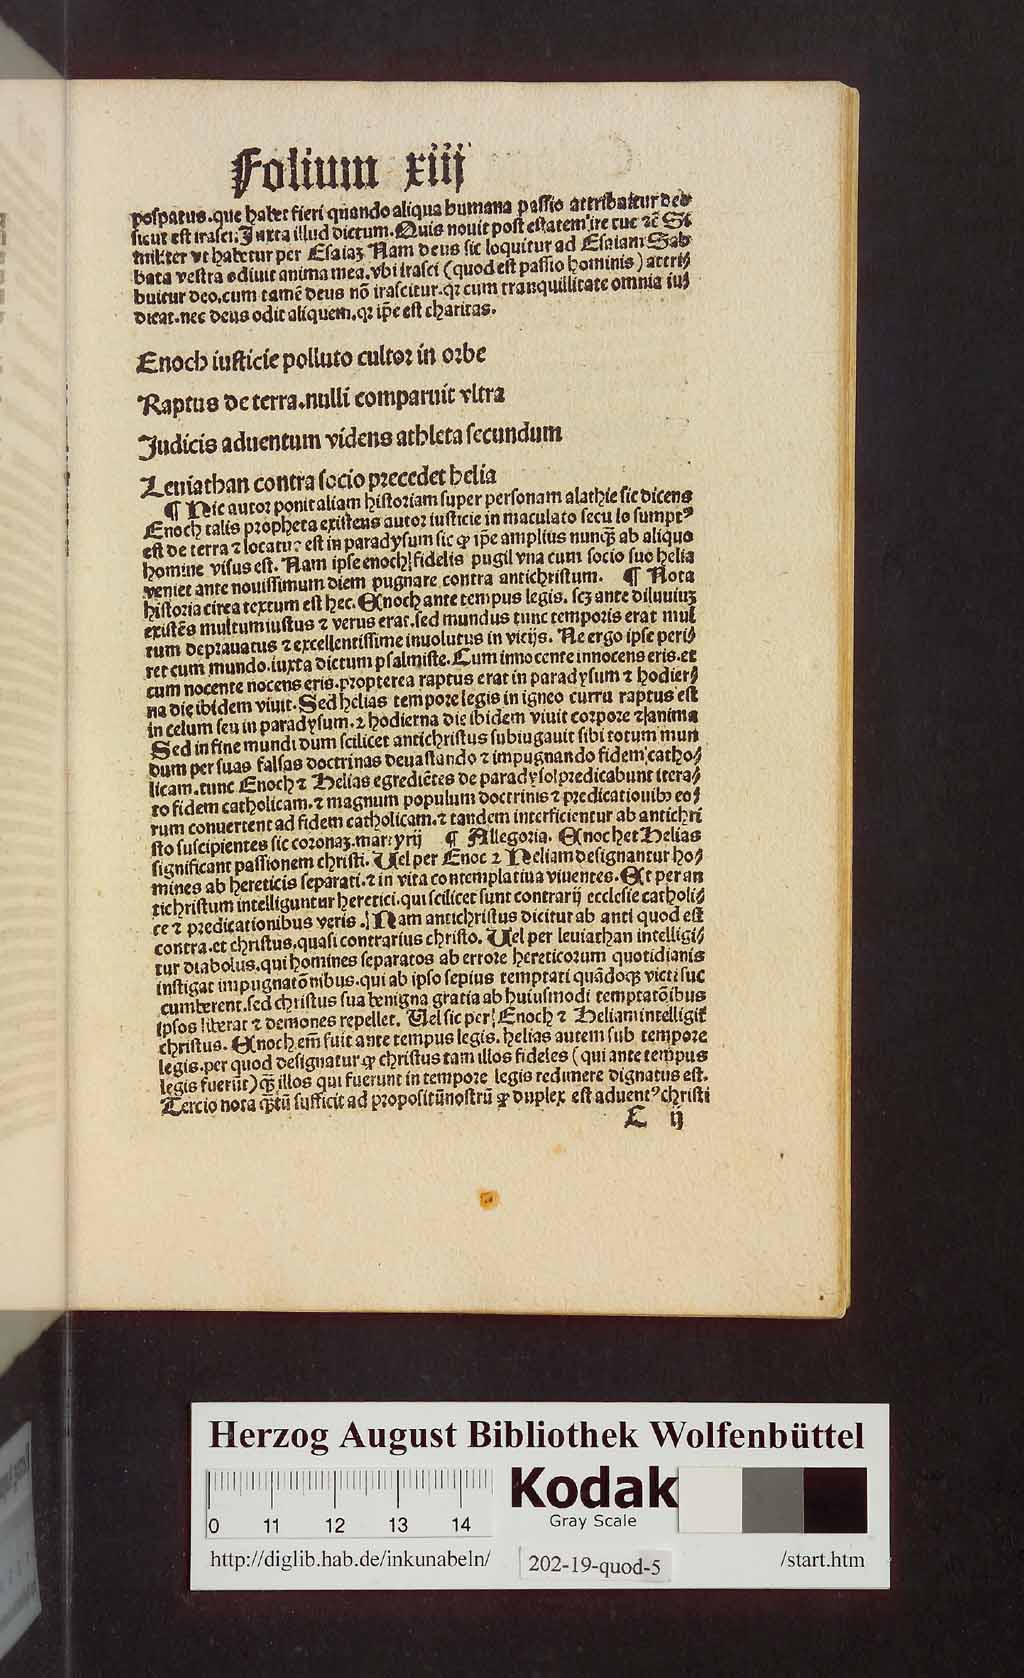 Folium xiij
pospatus.que habet fieri quando aliqua humana passio attribuitur deo
sicut est irasci. Juxta illud dictum. Quis nouit potestatem ire tue zē Si
militer vt habetur per Esaiaʒ Nam deus sic loquitur ad Esaiam Sab
bata vestra odiuit anima mea.vbi irasci (quod est passio hominis) attri⸗
buitur deo.cum tamē deus nō irascitur.qꝛ cum tranquillitate omnia iu⸗
dicat.nec deus odit aliquem.qꝛ ip̄e est charitas.
Enoch iusticie polluto cultoꝛ in oꝛbe
Raptus de terra.nulli comparuit vltra
Judicis aduentum videns athleta secundum
Leuiathan contra socio pꝛecedet helia
¶ Hic autoꝛ ponit aliam histoꝛiam super personam alathie sic dicens
Enoch talis pꝛopheta existens autoꝛ iusticie in maculato seculo sumptꝰ
est de terra ⁊ locatur est in paradysum sic ꝙ ip̄e amplius nunqꝫ ab aliquo
homine visus est. Nam ipse enoch fidelis pugil vna cum socio suo helia
veniet ante nouissimum diem pugnare contra antichꝛistum. ¶ Nota
histoꝛia circa textum est hec. Enoch ante tempus legis. scʒ ante diluuiuʒ
existēs multum iustus ⁊ verus erat.sed mundus tunc tempoꝛis erat mul
tum depꝛauatus ⁊ excellentissime inuolutus in vicijs. Ne ergo ipse peri⸗
ret cum mundo.iuxta dictum psalmiste. Cum innocente innocens eris.et
cum nocente nocens eris.pꝛopterea raptus erat in paradysum ⁊ hodier⸗
na die ibidem viuit. Sed helias tempoꝛe legis in igneo curru raptus est
in celum seu in paradysum.⁊ hodierna die ibidem viuit coꝛpoꝛe ⁊ anima
Sed in fine mundi dum scilicet antichꝛistus subiugauit sibi totum mun
dum per suas falsas doctrinas deuastando ⁊ impugnando fidem catho⸗
licam.tunc Enoch ⁊ Helias egrediētes de paradyso pꝛedicabunt itera⸗
to fidem catholicam.⁊ magnum populum doctrinis ⁊ pꝛedicationibꝫ eo⸗
rum conuertent ad fidem catholicam.⁊ tandem interficientur ab antichꝛi
sto suscipientes sic coꝛonaʒ.martyrij ¶ Allegoꝛia. Enoch et Helias
significant passionem chꝛisti. Uel per Enoc ⁊ Heliam designantur ho⸗
mines ab hereticis separati.⁊ in vita contemplatiua viuentes. Et per an
tichꝛistum intelliguntur heretici.qui scilicet sunt contrarij ecclesie catholi⸗
ce ⁊ pꝛedicationibus veris. Nam antichꝛistus dicitur ab anti quod est
contra.et chꝛistus.quasi contrarius chꝛisto. Uel per leuiathan intelligi⸗
tur diabolus.qui homines separatos ab erroꝛe hereticoꝛum quotidianis
instigat impugnatōnibus.qui ab ipso sepius temptati quādoqꝫ victi suc
cumberent.sed chꝛistus sua benigna gratia ab huiusmodi temptatōibus
ipsos liberat ⁊ demones repellet. Uel sic per Enoch ⁊ Heliam intelligit̄
chꝛistus. Enoch em̄ fuit ante tempus legis. helias autem sub tempoꝛe
legis.per quod designatur ꝙ chꝛistus tam illos fideles (qui ante tempus
legis fuerūt) qꝫ illos qui fuerunt in tempoꝛe legis redimere dignatus est.
Tercio nota qꝫtū sufficit ad pꝛopositū nostrū ꝙ duplex est aduentꝰ chꝛisti
C ij
Herzog August Bibliothek Wolfenbüttel
Kodak
Gray Scale
0 11 12 13 14
http://diglib.hab.de/inkunabeln/ 202-19-quod-5 /start.htm